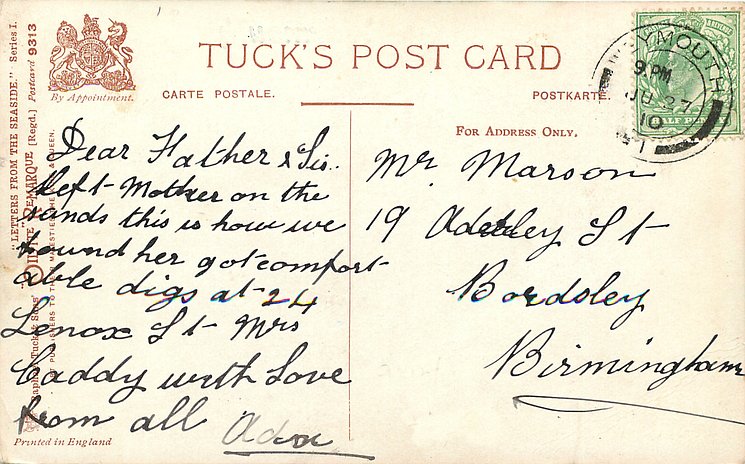 "LETTERS FROM THE SEASIDE." Series I.
"OILETTE" REMARQUE [Regd.] Postcard 9313
Raphael Tuck & Sons'
PUBLISHERS TO THEIR MAJESTIES THE KING & QUEEN.
By Appointment.
TUCK'S POST CARD
CARTE POSTALE.
POSTKARTE.
For Address Only.
WEYMOUTH
9 PM
JU 27
10
HALF PENNY
Dear Father & Sis.
Left Mother on the
sands this is how we
found her got comfort-
able digs at 24
Lenox St Mrs
Caddy with Love
from all Ada
Mr. Marson
19 Adderley St
Bordsley
Birmingham
Printed in England